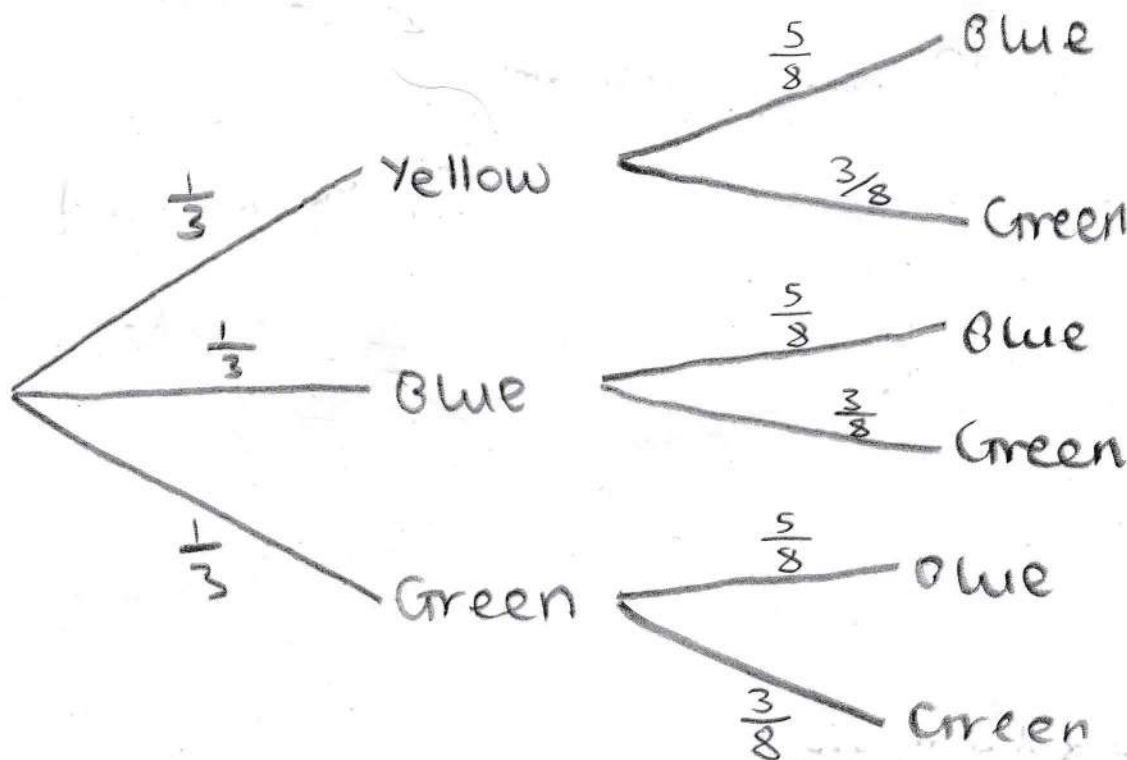 5/8 Blue
1/3 Yellow
3/8 Green
1/3 Blue
5/8 Blue
3/8 Green
1/3 Green
5/8 Blue
3/8 Green